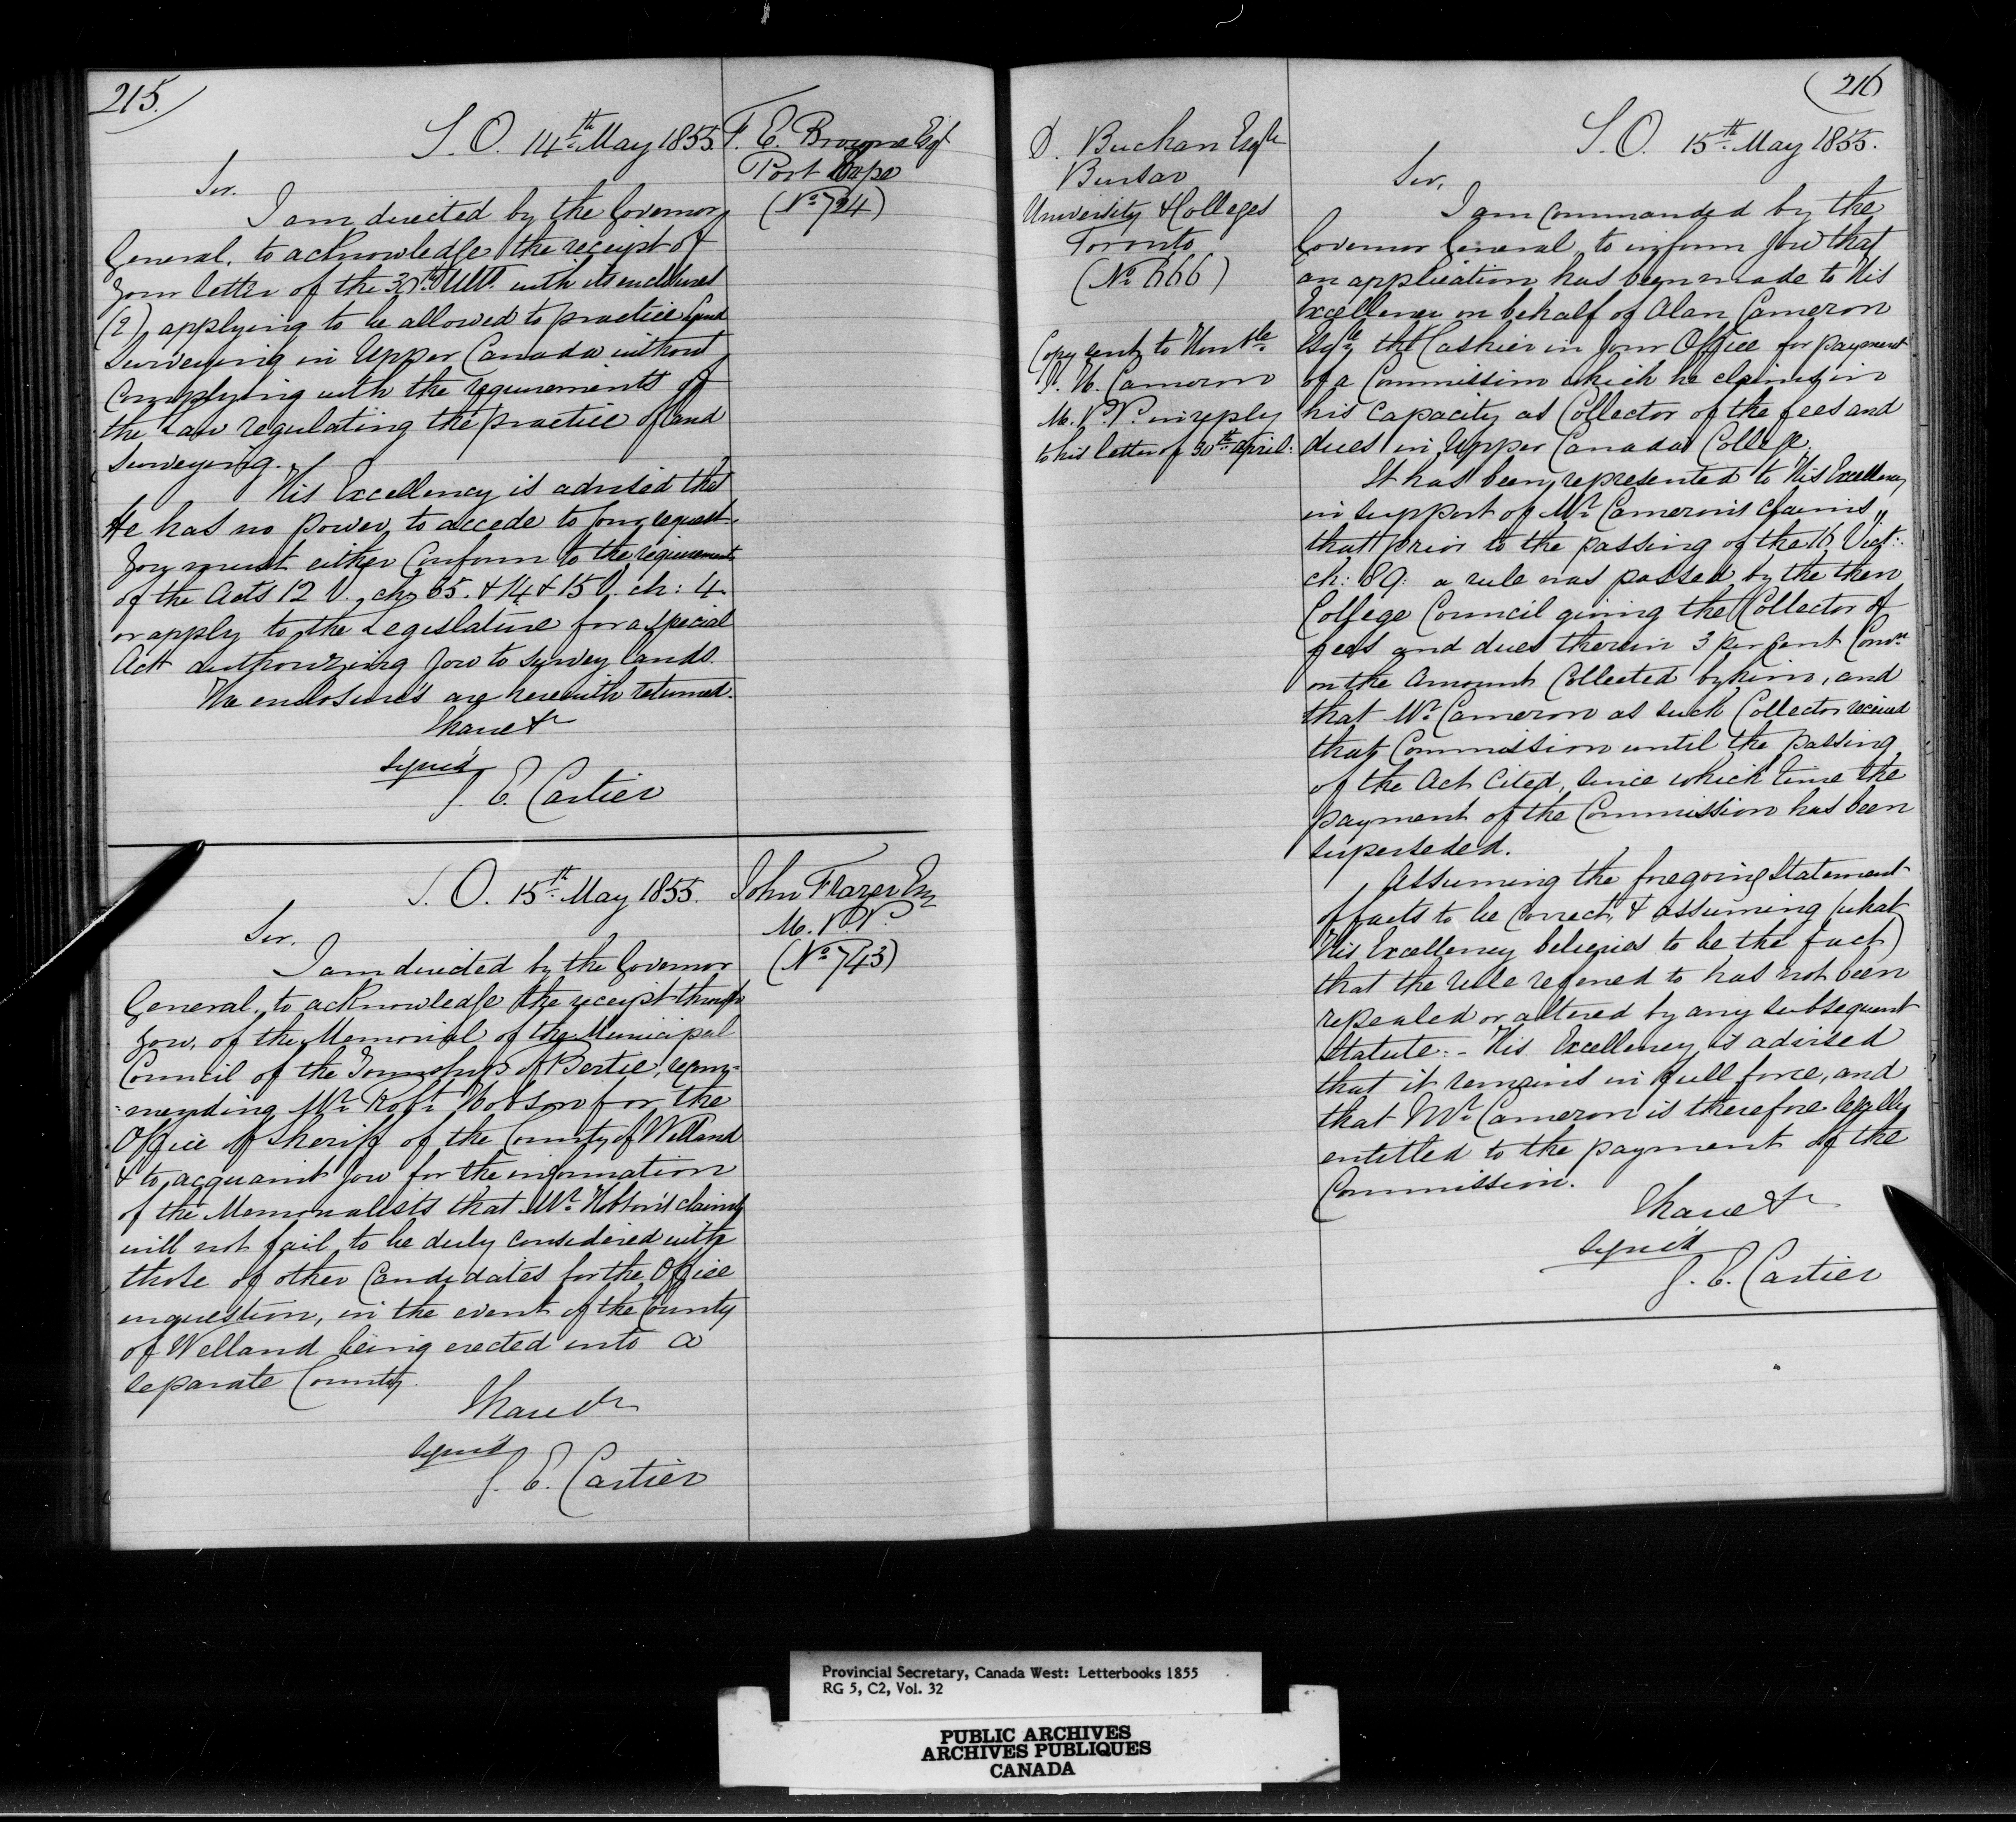 215.
S. O. 14th May 1855.
F. E. Browne Esqr
Port Hope
(No 724)
Sir.
I am directed by the Governor
General, to acknowledge the receipt of
your letter of the 30th Ult. with its enclosures
(2), applying to be allowed to practice Land
Surveying in Upper Canada without
Complying with the requirements of
the Law regulating the practice of Land
Surveying.
His Excellency is advised that
He has no power, to accede to your request.
You must either Conform to the requirements
of the Acts 12 V. ch: 35. & 14 & 15 V. ch: 4.
or apply to the Legislature for a special
Act authorizing you to survey lands.
The enclosure's are herewith returned.
I have &c
Signed
G. E. Cartier
S. O. 15th May 1855.
John Frazer Esq
M. P. P.
(No 743)
Sir.
I am directed by the Governor
General, to acknowledge the receipt through
you, of the Memorial of the Municipal
Council of the Township of Bertie, recom-
-mending Mr Robt Hobson for the
Office of Sheriff of the County of Welland
& to acquaint you for the information
of the Memorialists that Mr Hobson's claims
will not fail to be duly considered with
those of other Candidates for the Office
in question, in the event of the County
of Welland being erected into a
separate County.
I have &c
Signed
G. E. Cartier
216
D. Buchan Esqre
Bursar
University & Colleges
Toronto
(No 666)
Copy sent to Honble
J. H. Cameron
M. P. P. in reply
to his letter of 30th April.
S. O. 15th May 1855.
Sir,
I am Commanded by the
Governor General, to inform you that
an application has been made to His
Excellency on behalf of Alan Cameron
Esqre the Cashier in your Office for payment
of a Commission which he claims in
his Capacity as Collector of the fees and
dues in Upper Canada College.
It has been represented to His Excellency
in support of Mr Cameron's Claims,,
that prior to the passing of the 16 Vict:
ch: 89: a rule was passed by the then
College Council giving the Collector of
fees and dues therein 3 per Cent Comn
on the Amount Collected by him, and
that Mr Cameron as such Collector received
that Commission until the passing
of the Act Cited, since which time the
payment of the Commission has been
superseded.
Assuming the foregoing Statement
of facts to be Correct, & assuming (what
His Excellency believes to be the fact)
that the rule referred to has not been
repealed or altered by any subsequent
Statute. - His Excellency is advised
that it remains in full force, and
that Mr Cameron is therefore legally
entitled to the payment of the
Commission.
I have &c
Signed
G. E. Cartier
Provincial Secretary, Canada West: Letterbooks 1855
RG 5, C2, Vol. 32
PUBLIC ARCHIVES
ARCHIVES PUBLIQUES
CANADA